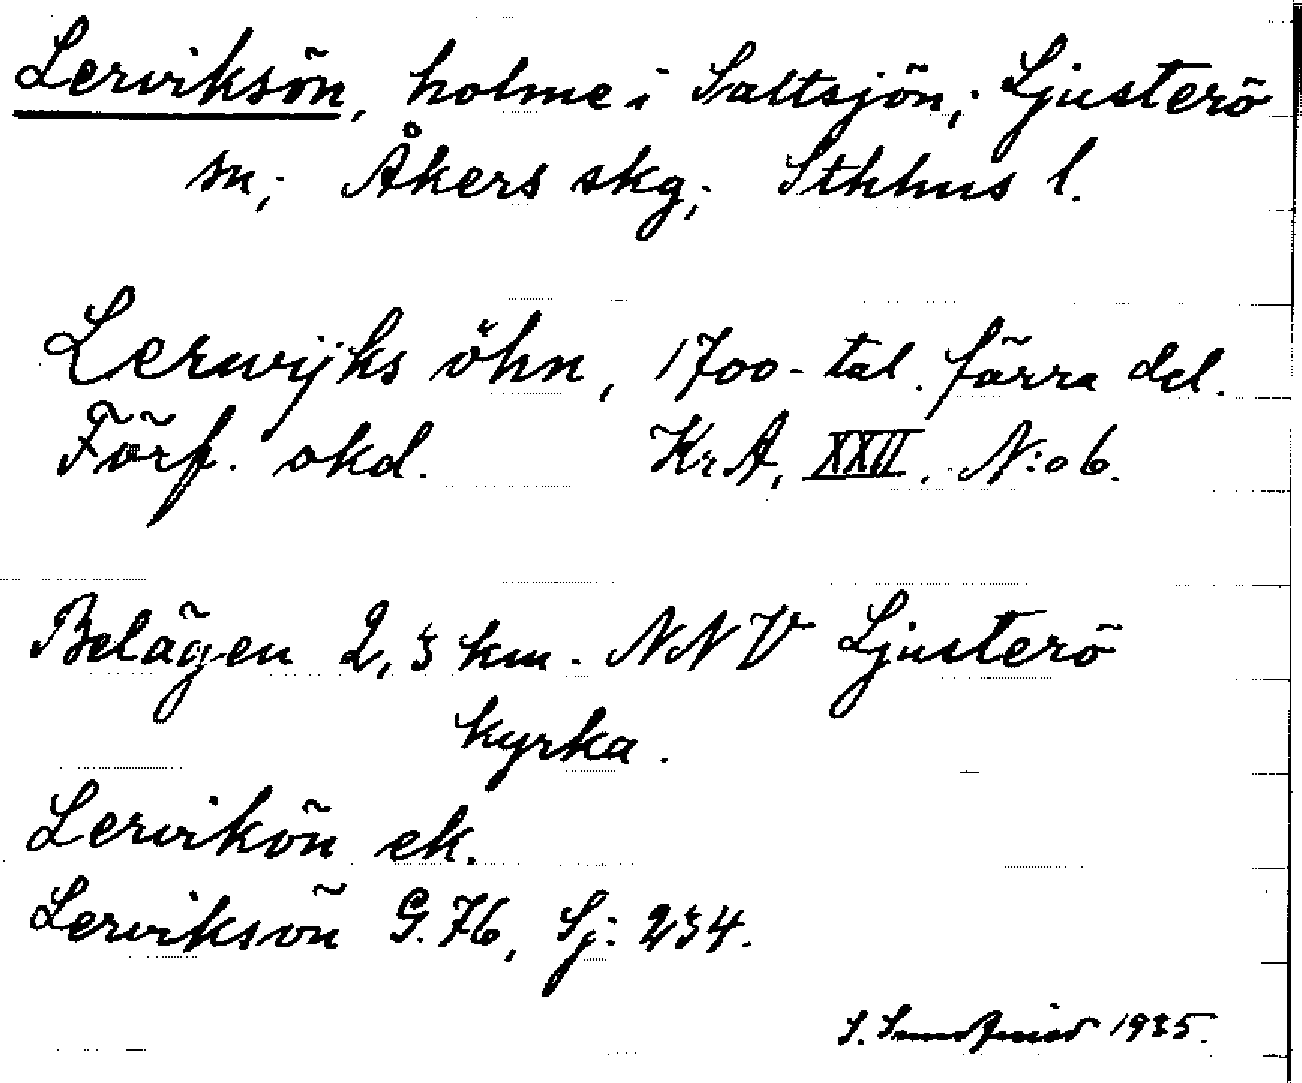 Lerviksön, holme i Saltsjön; Ljusterö
sn; Åkers skg; Sthhus l.
Lerwijks öhn, 1700-tal. färra del.
Förf. okd. KrA, XXII. N:o 6.
Belägen 2,3 km. NNV Ljusterö
kyrka.
Lervikön ek.
Lerviksön G.76, Sj: 234.
S. 1935.